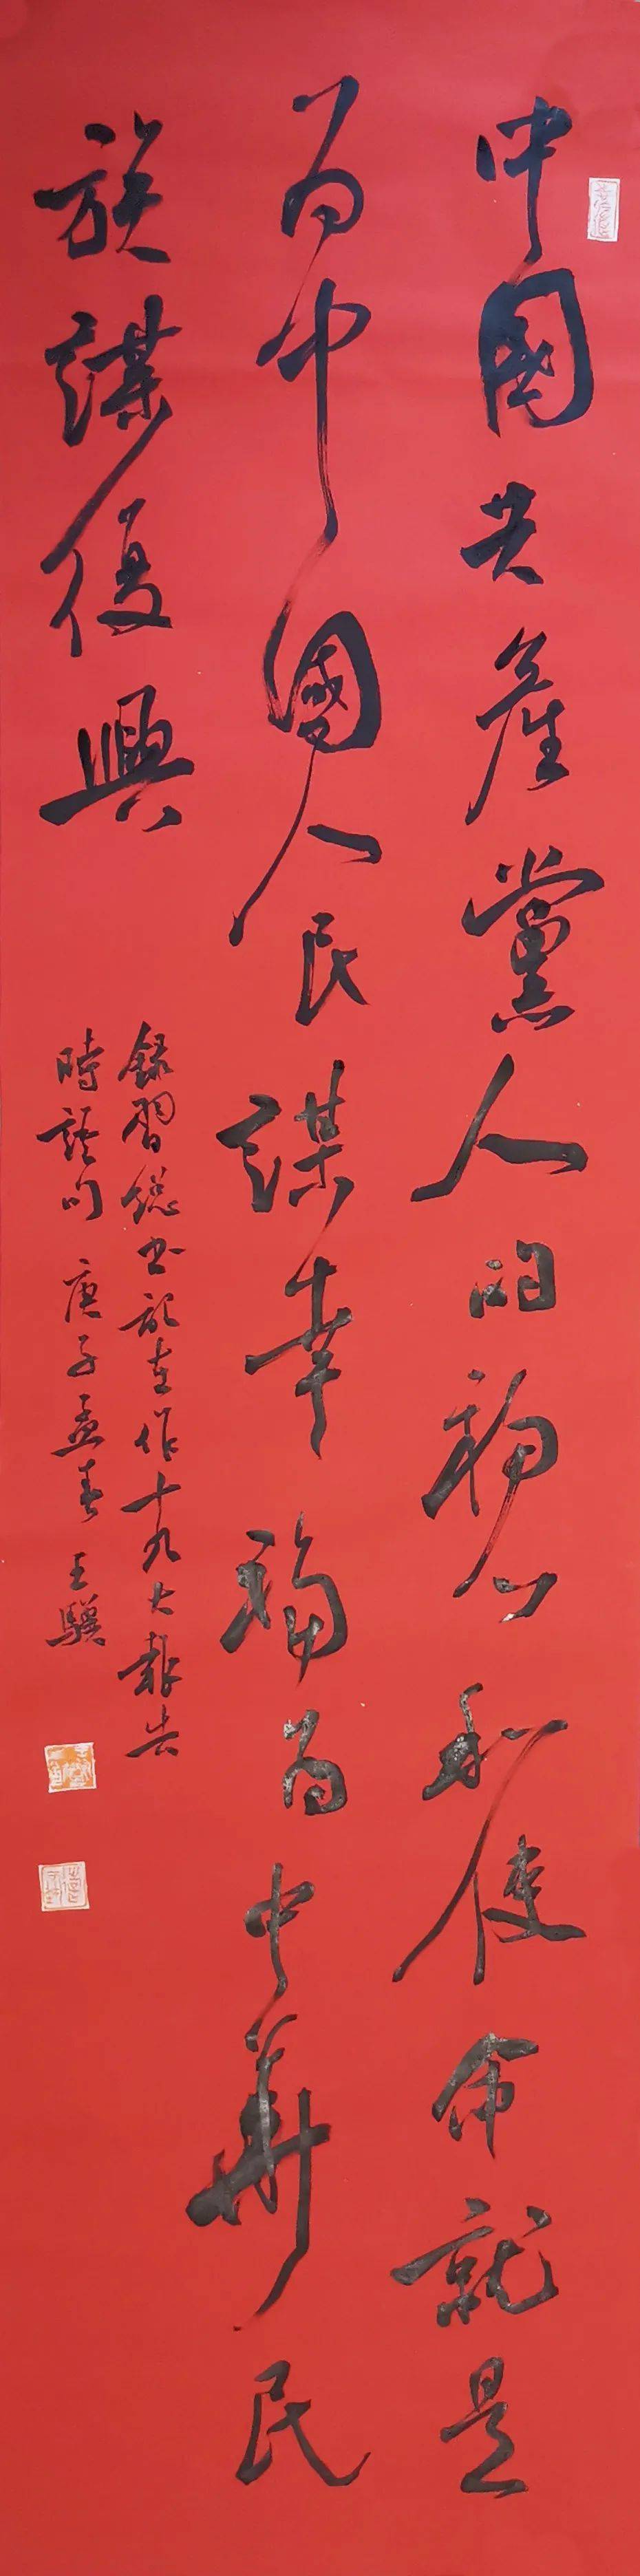 中國共產黨人的初心和使命就是
為中國人民謀幸福為中華民
族謀復興
錄習總書記在作十九大報告
時語句 庚子孟春 王驥